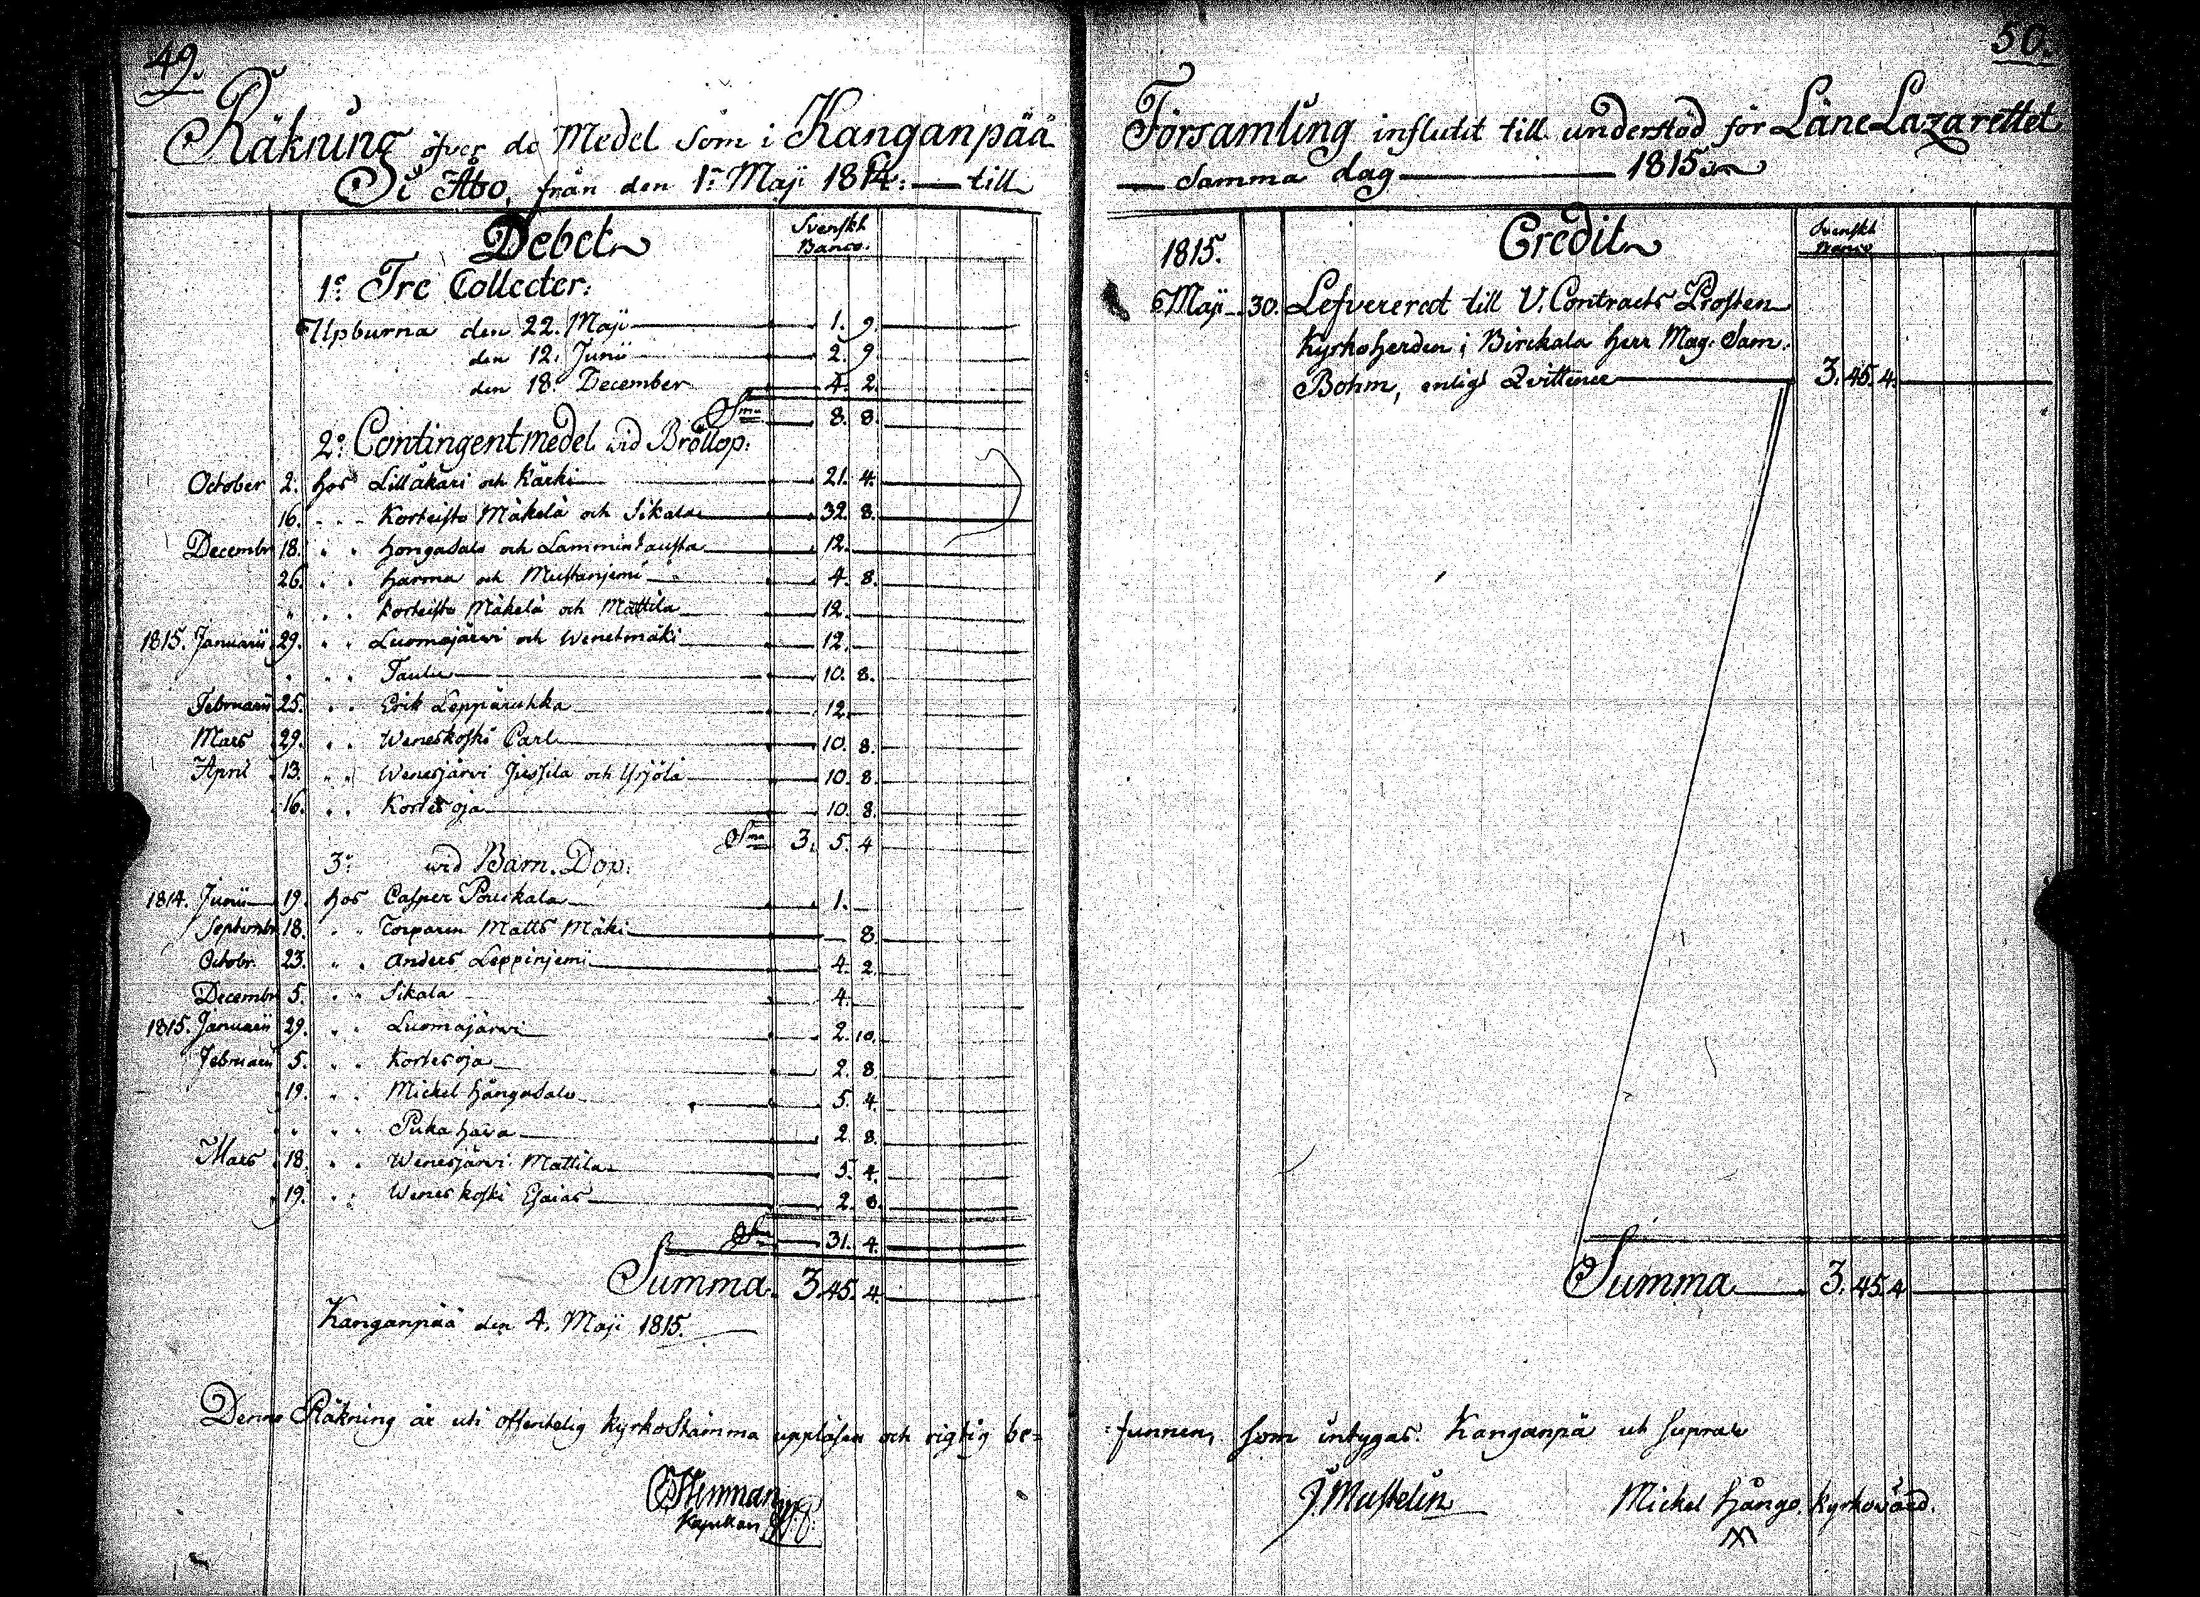 49.
Räkning öfver de Medel som i Kanganpää
i Åbo, från den 1. Maji 1814. — till
Debet
Svenskt
Banco.
1:o Tre Collecter:
Upburna den 22. Maji 1. 9.
den 12. Junii 2. 9
den 18. December 4. 2.
S:ma 8. 8.
2:o Contingentmedel wid Bröllop:
October 2. hos Lillåkäri och Kärki 21. 4.
16. Korteisto Mäkelä och Sikala 32. 8.
Decembr 18. Hongasalo och Lamminkausta 12.
26. Harma och Mustanjemi 4. 8.
" Korteisto Mäkelä och Mattila 12.
1815. Januarii 29. Luomajärwi och Wenetmäki 12.
Taulu 10. 8.
Februarii 25. Erik Leppäruhka 12.
Mars 29. Weneskoski Carl 10. 8.
April 13. Wenesjärvi Jussila och Yrjölä 10. 8.
16. Kortesoja 10. 8.
S:ma 3. 5. 4
3:o wid Barn-Dop:
1814. Junii 19. hos Casper Pouskala 1.
Septembr 18. Torparen Matts Mäki 8.
Octobr. 23. Anders Leppinjemi 4. 2.
Decembr 5. Sikala 4.
1815. Januarii 29. Luomajärwi 2. 10.
Februarii 5. Kortesoja 2. 8.
19. Mickel Hångasalo 5. 4.
" Pukahara 2. 8.
Mars 18. Wenesjärvi Mattila 5. 4.
19. Weneskoski Esaias 2. 8.
S:ma 31. 4.
Summa 3. 45. 4.
Kanganpää den 4. Maji 1815.
Denna Räkning är uti offentelig kyrkostämma uppläsen och rigtig be=
Kapellan
50.
Församling influtit till understöd för Läne Lazarettet
— Samma dag — 1815.
Credit
Svenskt
Banco
1815.
Maji 30. Lefvererat till V. Contracts Prosten
Kyrkoherden i Birckala herr Mag. Sam.
Bohm, enligt Qvittence 3. 45. 4.
Summa 3. 45. 4
funnen, som intygas. Kanganpä ut supra
J. Mustelin
Mickel Hångo. kyrkovärd.